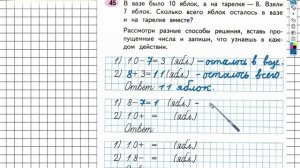 45 В вазе было 10 яблок, а на тарелке — 8. Взяли
7 яблок. Сколько всего яблок осталось в вазе
и на тарелке вместе?
Рассмотри разные способы решения, вставь про-
пущенные числа и запиши, что узнаешь в каж-
дом действии.
1) 10-7=3 (ябл.) - осталось в вазе.
2) 8+3=11 (ябл.) - осталось всего.
Ответ: 11 яблок.
1) 8-7=1 (ябл.) -
2) 10+ = (ябл.)
Ответ:
1) 10+ = (ябл.)
2) 18- = (ябл.)